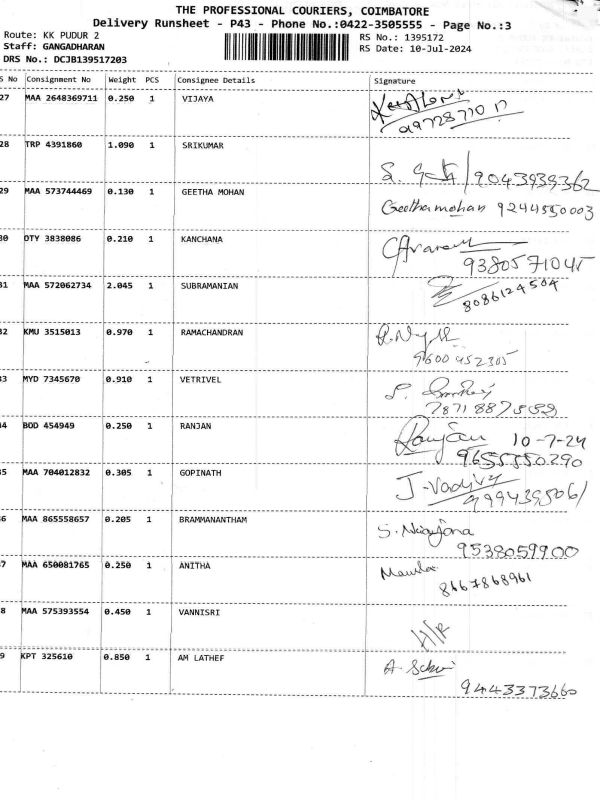 THE PROFESSIONAL COURIERS, COIMBATORE
Delivery Runsheet - P43 - Phone No.:0422-3505555 - Page No.:3
Route: KK PUDUR 2
RS No.: 1395172
Staff: GANGADHARAN
RS Date: 10-Jul-2024
DRS No.: DCJB139517203
S No Consignment No Weight PCS Consignee Details Signature
27 MAA 2648369711 0.250 1 VIJAYA
28 TRP 4391860 1.090 1 SRIKUMAR
9043939362
29 MAA 573744469 0.130 1 GEETHA MOHAN Geethamohan 9244550003
30 OTY 3838086 0.210 1 KANCHANA
9380571045
31 MAA 572062734 2.045 1 SUBRAMANIAN
8086124504
32 KMU 3515013 0.970 1 RAMACHANDRAN
9600452305
33 MYD 7345670 0.910 1 VETRIVEL
34 BOD 454949 0.250 1 RANJAN Ranjan 10-7-24
9655550290
35 MAA 704012832 0.305 1 GOPINATH
9994395061
36 MAA 865558657 0.205 1 BRAMMANANTHAM
9538059900
37 MAA 650081765 0.250 1 ANITHA
8667868961
38 MAA 575393554 0.450 1 VANNISRI
H/R
39 KPT 325610 0.850 1 AM LATHEF
9443373660